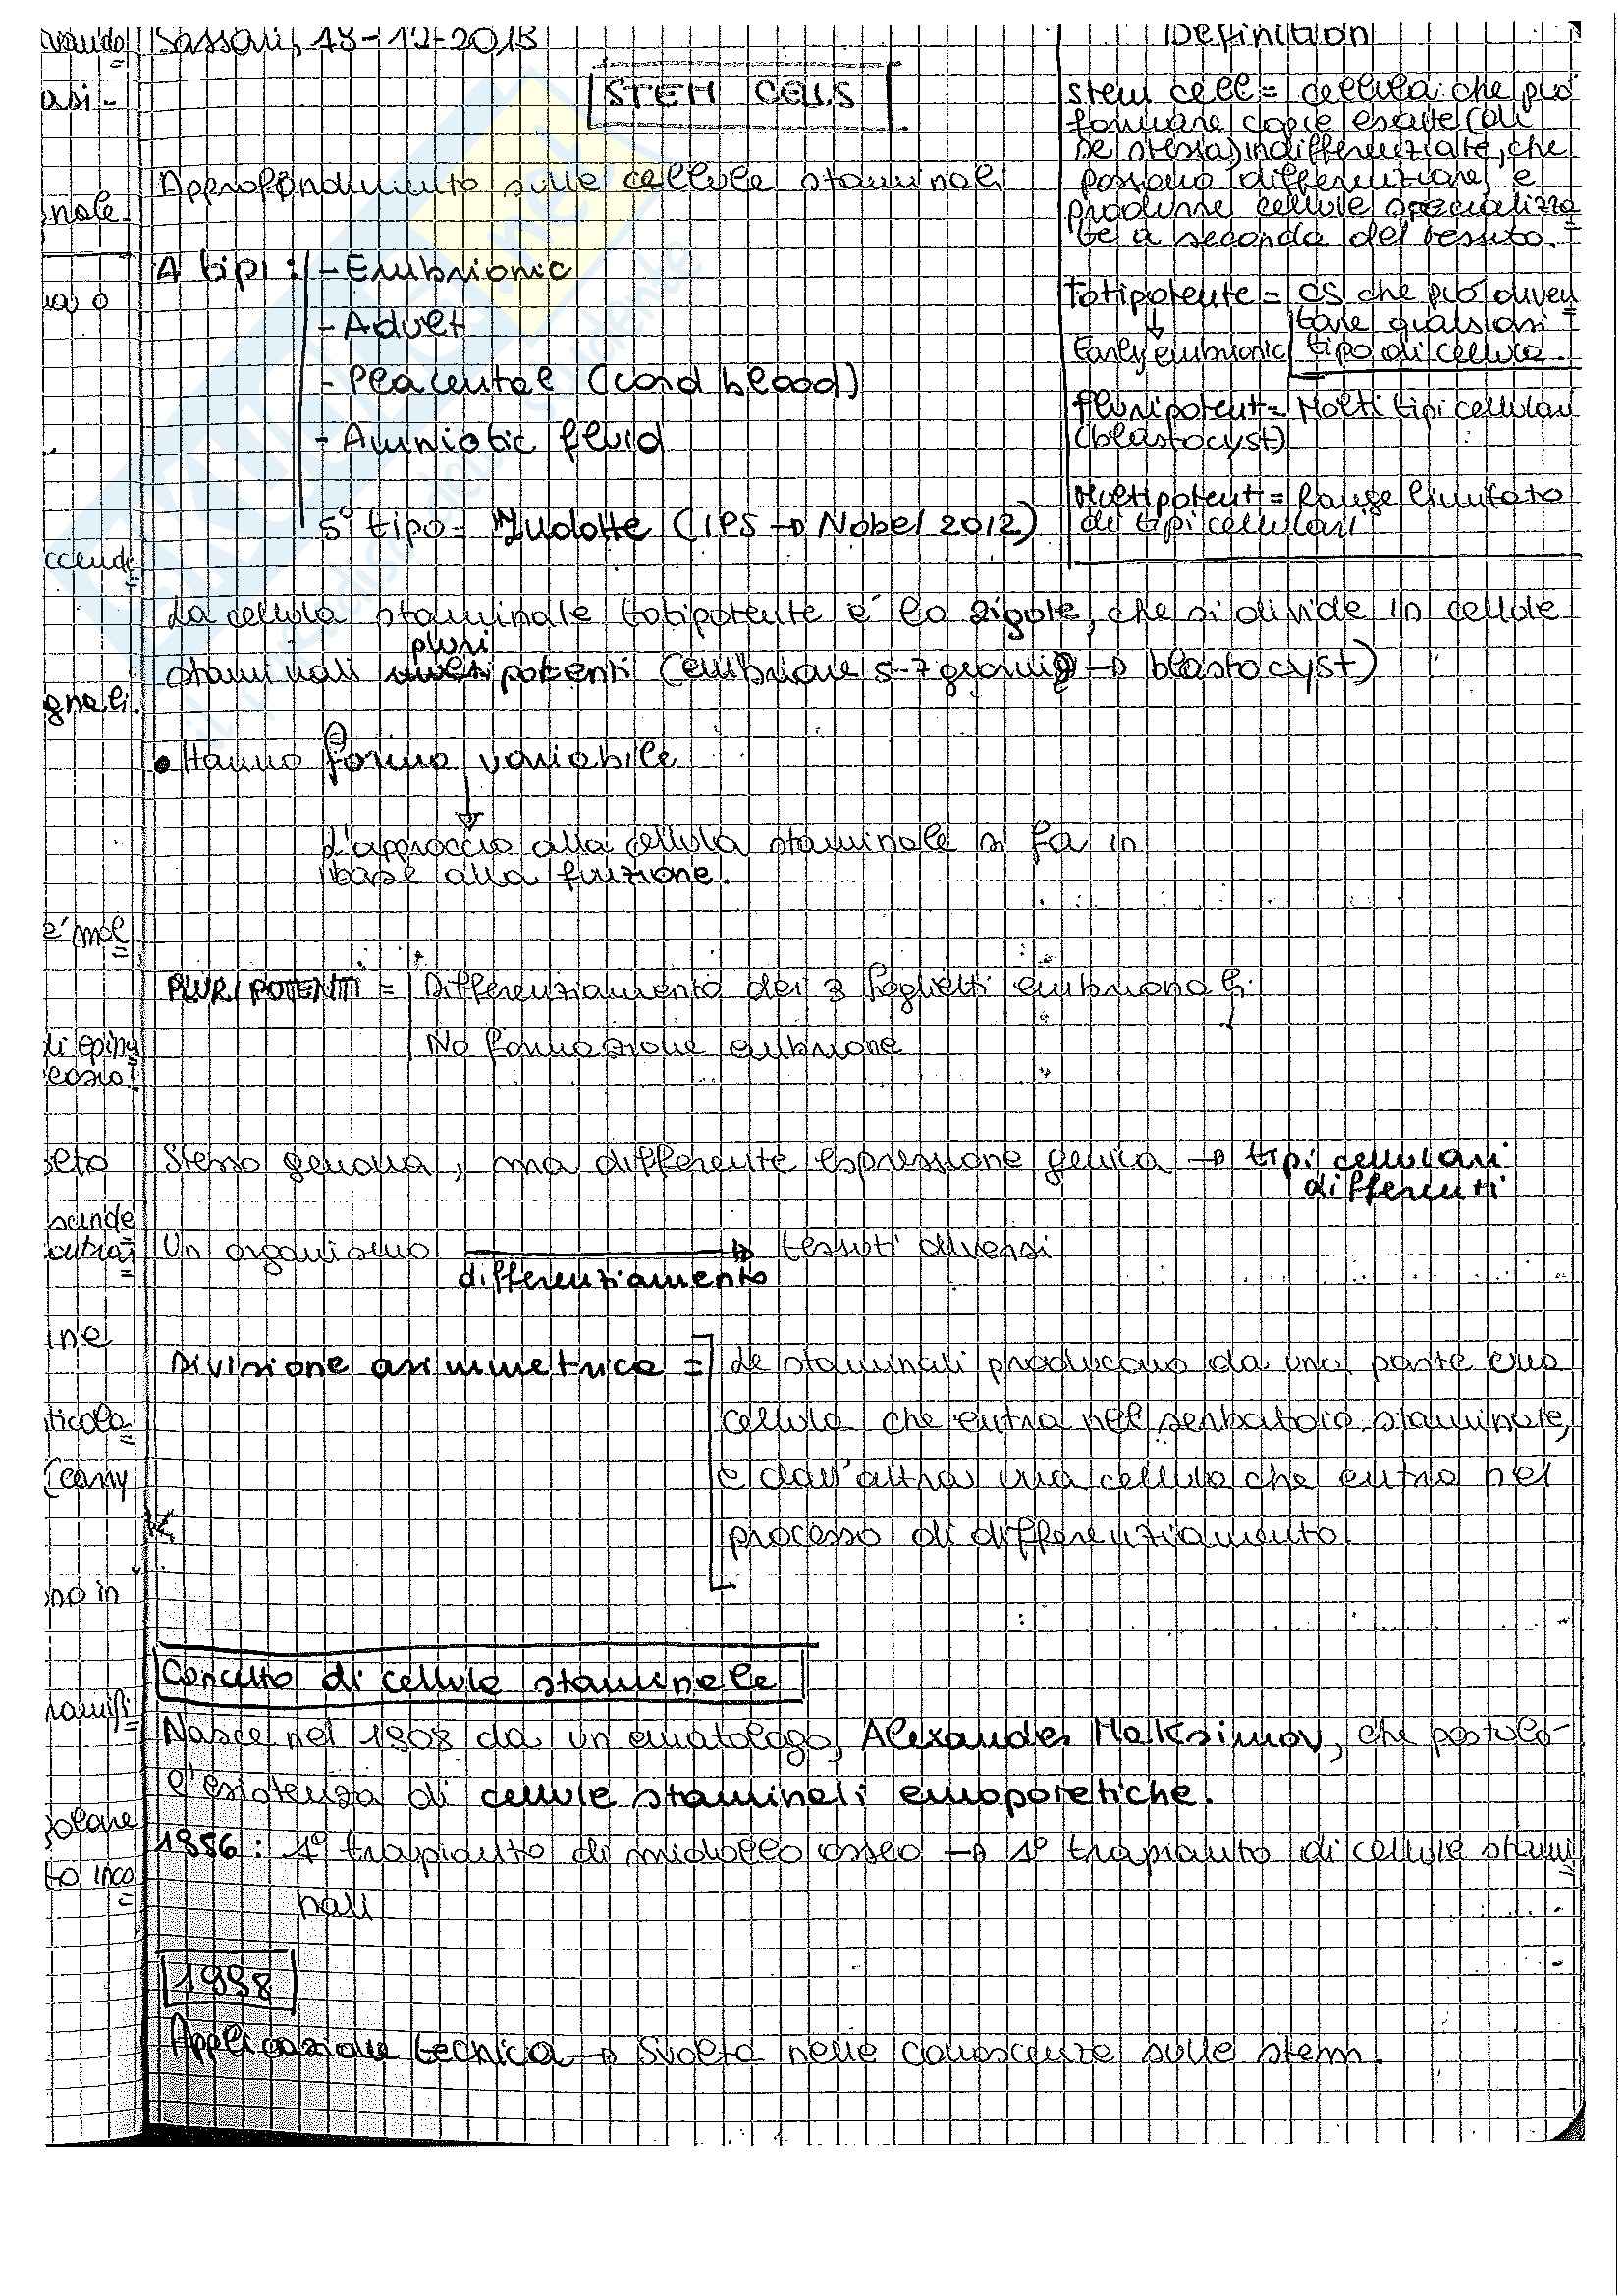 Sassari, 18-12-2013
STEM CELLS
Approfondimento sulle cellule staminali
4 tipi: - Embrionic
- Adult
- Placental (cord blood)
- Amniotic fluid
5° tipo = Indotte (IPS → Nobel 2012)
Definition
stem cell = cellula che può
formare copie esatte (di
se stessa) indifferenziate, che
possono differenziare, e
produrre cellule specializza
te a seconda del tessuto.
Totipotente = CS che può diven
tare qualsiasi
Early embrionic tipo di cellula.
Pluripotent = Molti tipi cellulari
(blastocyst)
Multipotenti = Range limitato
di tipi cellulari
La cellula staminale totipotente è lo zigote, che si divide in cellule
pluri
staminali potenti (embrione 5-7 giorni → blastocyst)
• Hanno forma variabile
L'approccio alla cellula staminale si fa in
base alla funzione.
PLURIPOTENTI = Differenziamento dei 3 foglietti embrionali
No formazione embrione
Stesso genoma, ma differente espressione genica → tipi cellulari
differenti
Un organismo → tessuti diversi
differenziamento
Divisione asimmetrica = Le staminali producono da una parte una
cellula che entra nel serbatoio staminale,
e dall'altra una cellula che entra nel
processo di differenziamento.
Concetto di cellula staminale
Nasce nel 1908 da un ematologo, Alexander Maksimov, che postulò
l'esistenza di cellule staminali emopoietiche.
1956: 1° trapianto di midollo osseo → 1° trapianto di cellule stami
nali
1998
Applicazione tecnica → Svolta nelle conoscenze sulle stem.